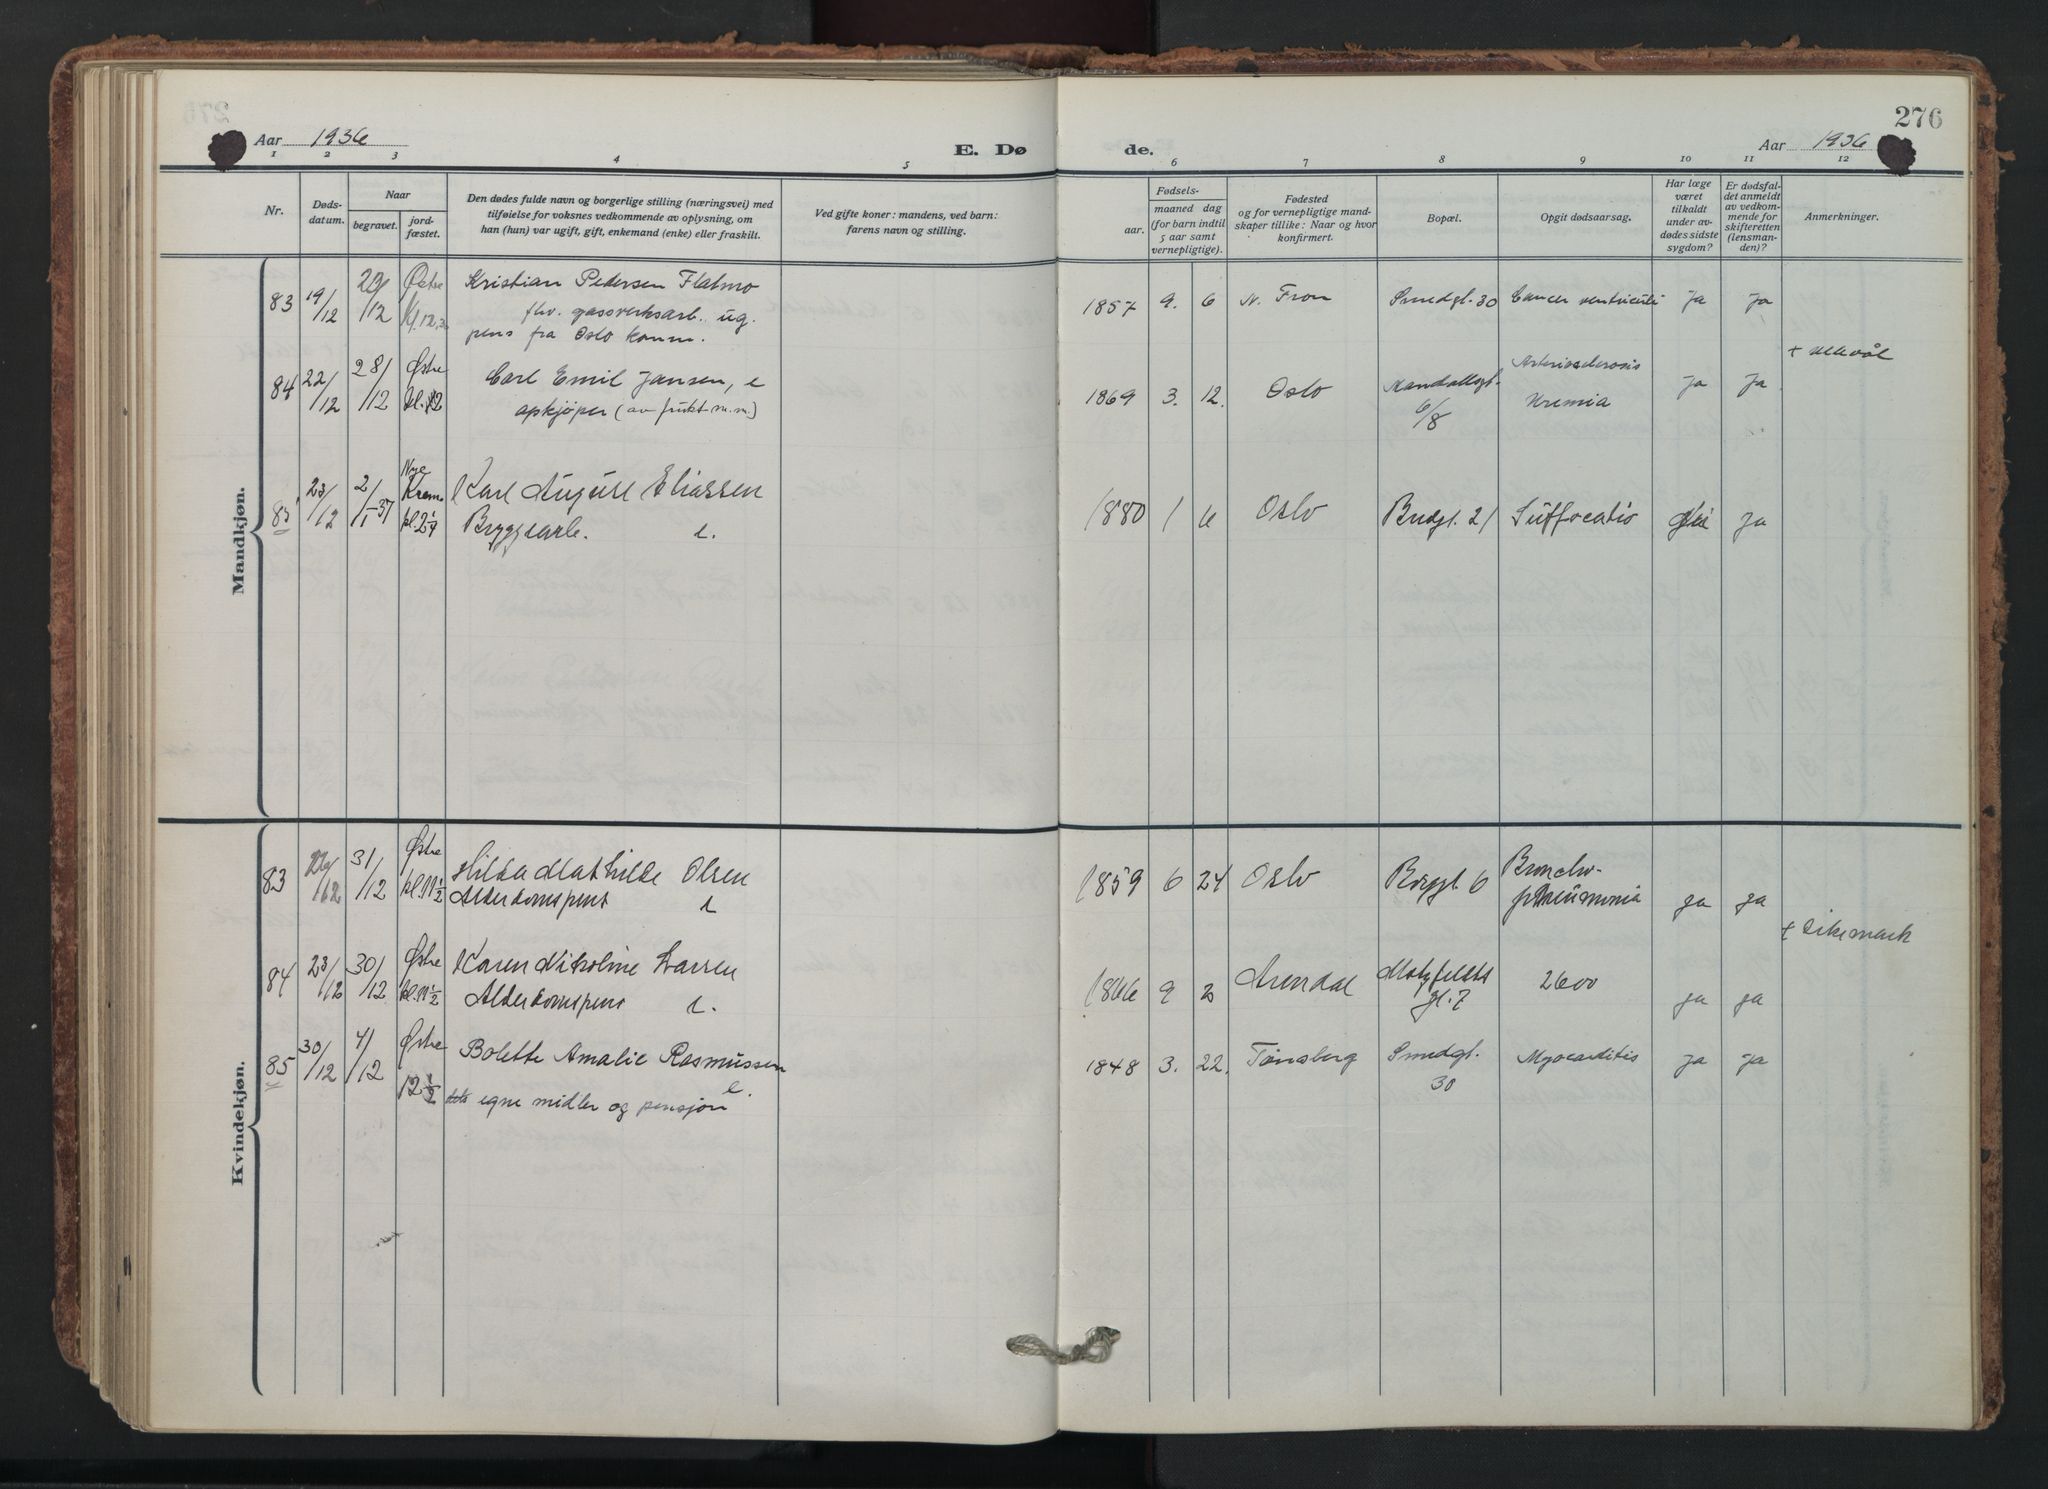 276
Aar 1936
E. Dø de.
Aar 1936
1 2 3 4 5 6 7 8 9 10 11 12
Nr.
Døds-
datum.
Naar
begravet.
jord-
fæstet.
Den dødes fulde navn og borgerlige stilling (næringsvei) med
tilføielse for voksnes vedkommende av oplysning, om
han (hun) var ugift, gift, enkemand (enke) eller fraskilt.
Ved gifte koner: mandens, ved barn:
farens navn og stilling.
Fødsels-
aar.
maaned dag
(for barn indtil
5 aar samt
vernepligtige).
Fødested
og for vernepligtige mand-
skaper tillike: Naar og hvor
konfirmert.
Bopæl.
Opgit dødsaarsag.
Har læge
været
tilkaldt
under av-
dødes sidste
sygdom?
Er dødsfal-
det anmeldt
av vedkom-
mende for
skifteretten
(lensman-
den)?
Anmerkninger.
Mandkjøn.
83 19/12 29/12 Østre Kl. 12,30 Kristian Pedersen Flatmo 1857 9. 6 N. Fron Smedgt. 30 Cancer ventriculi ja ja
fhv. gassverksarb. ug.
pens fra Oslo komm.
84 22/12 28/12 Østre kl. 12 Carl Emil Jansen, e 1869 3. 12. Oslo 6/8 Arteriosclerosis ja ja + Ullevål
opkjøper (av frukt m.m.) Uremia
85 23/12 2/1-37 Nye Krem. Karl August Eliassen 1880 1 6 Oslo 21 Suffocatio ja
Bryggearb. e.
Kvindekjøn.
83 31/12 Østre kl. 11 1/2 Hilda Mathilde Olsen 1859 6 24 Oslo Borggt. 6 Broncho-
pneumonia ja ja
Alderdomspens e
84 23/12 30/12 Østre kl. 11 1/2 Karen Nikoline Larsen 1866 9 2 Arendal Motzfeldts
gt. 7 2600 ja ja + Dikemark
Alderdomspens e.
85 30/12 4/12 Østre 12 1/2 Bolette Amalie Rasmussen 1848 3. 22. Tønsberg Smedgt.
30 Myocarditis ja ja
egne midler og pensjon e.